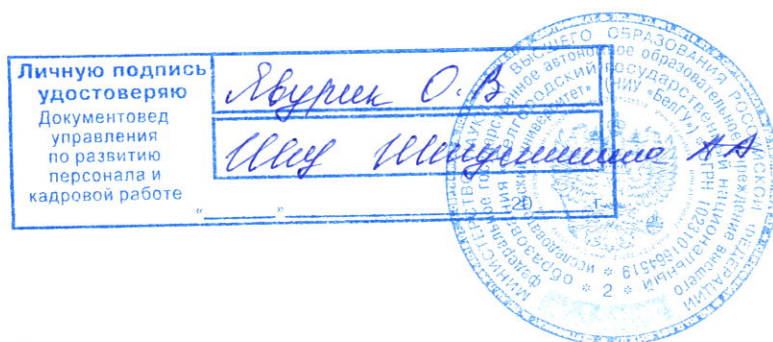 Личную подпись
удостоверяю
Документовед
управления
по развитию
персонала и
кадровой работе
Явурек О.В
АА
"____" ____________ 20____г.
МИНИСТЕРСТВО НАУКИ И ВЫСШЕГО ОБРАЗОВАНИЯ РОССИЙСКОЙ ФЕДЕРАЦИИ
федеральное государственное автономное образовательное учреждение высшего
образования «Белгородский государственный национальный
исследовательский университет» (НИУ «БелГУ»)
ОГРН 1023101664519
* 2 *